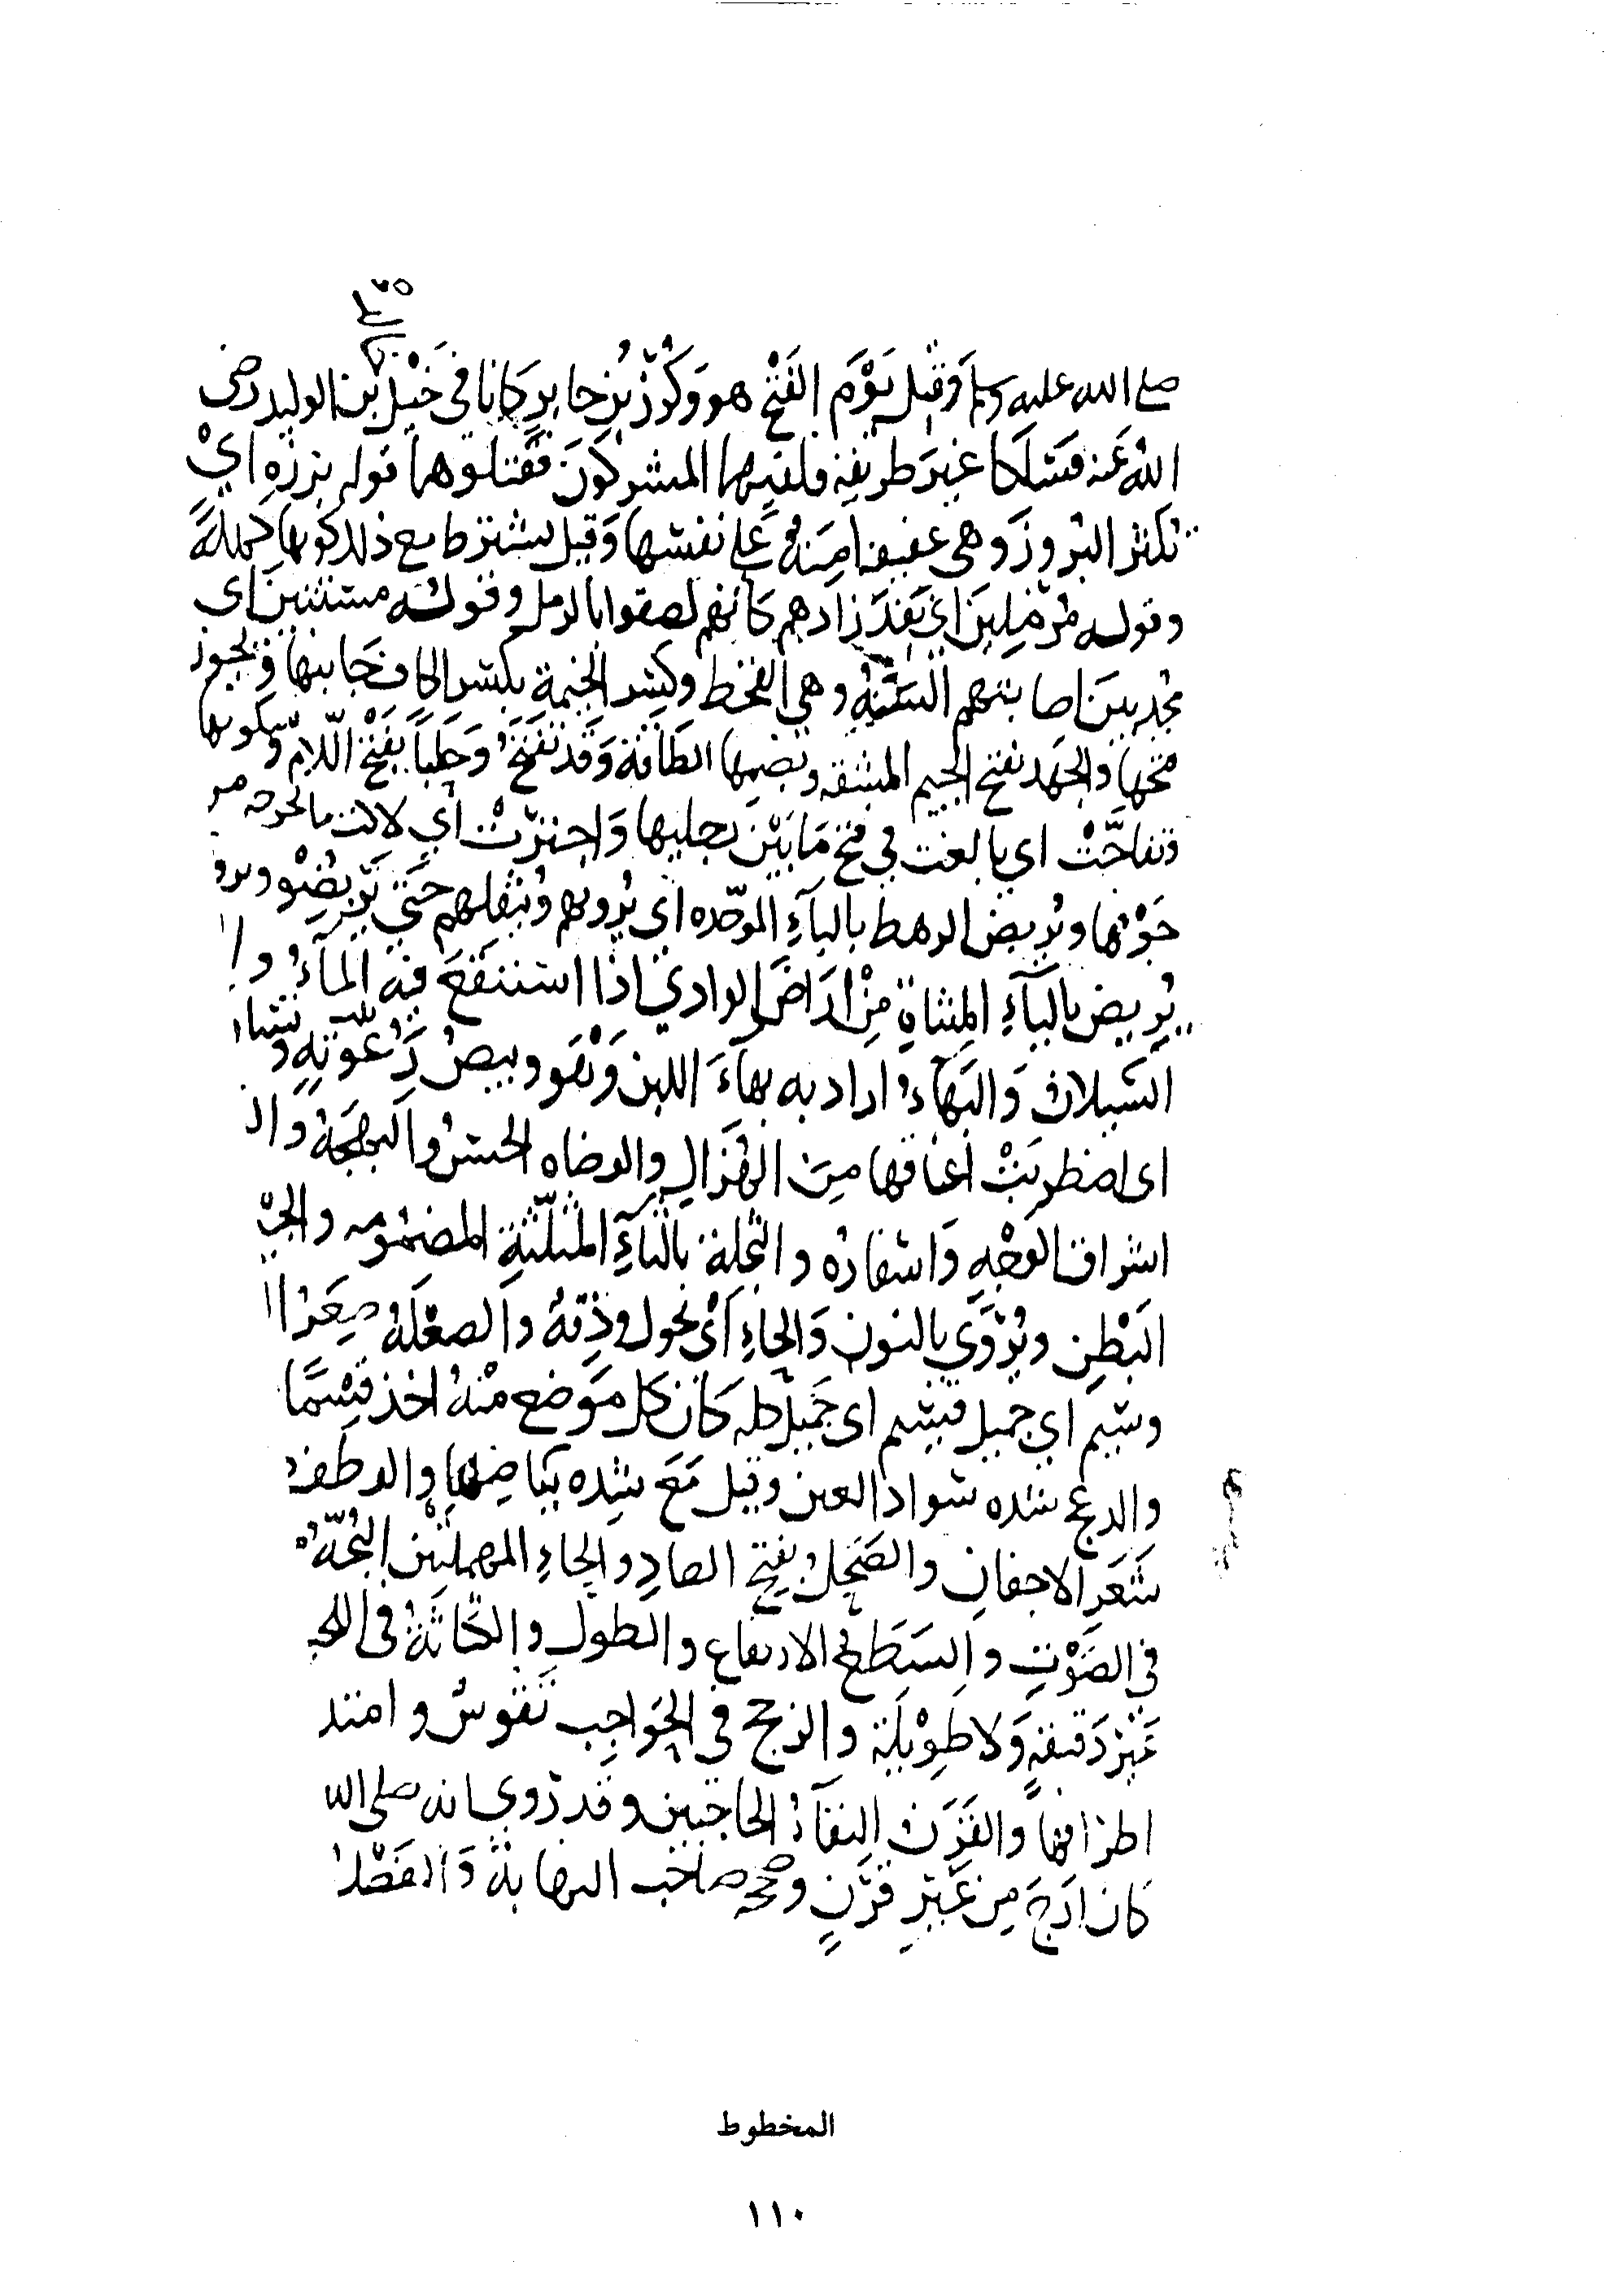 صلى الله عليه وسلم وقُتِل يَوْمَ الفَتْحِ هو وَكُرْزُ بْنُ جابرٍ كانا في خَيْل بن الوليد رضي
اللهُ عَنه فسَلَكا غيرَ طريقِه فلقيهما المشركُونَ فقتلوهما قوله برزه ايْ
تكثر البُروزَ وهي عفيفه امِنَةٌ عَلى نفسها وَقيل يشترط مع ذلك كونها كهلةً
وقوله مُرْمِلِينَ ايْ نَفِدَ زادهم كانهم لصقوا بالرمل وقوله مسنتين اي
مُجدبينَ اصابتهم السَّنَةُ وهي القحط وكِسْر الخيمة بكسر الكاف جَانبها وَيجوز
فتحها والجَهد بفتح الجيم المشقه وبضمها الطاقة وَقد تفتَح وَحَلَباً بفَتْح اللّام وَسكونها
فتفاجَّتْ اي بالغت في فتح مَا بَيْن رجليها وَاجترَّتْ اي لاكت ما اخرجته من
جَوْفها ويُربض الرهط بالبآءِ الموحّده اي يُرويهم ويُثقلهم حَتى يَرْبِضُوْا
يُريض باليآءِ المثناةِ مِنْ ارَاضَ الوادي اذا استنقعَ فيه المآءُ
السَّيلان وَالبَهَآءُ اراد به بهآءَ اللبن وَهُو وبيصُ رَغْوتِهِ
اي اضطربَتْ اعناقها مِنَ الهُزَالِ والوضاه الحسْنُ والبَهْجَةُ
اشراق الوَجْهِ وَاسْفارُه والثُّجلة بالثآءِ المثلّثةِ المضمُومه
البَطْنِ ويُرْوَي بالنون وَالحاءِ أَيْ نحول ودِقّةٌ وَالصعْلَة صِغَرُ
وسيم اي جميل قسيم اى جَميل كله كَان كل مَوضع مْنهُ اخذ قِسْمًا
والدعج شده سَواد العين وقيل مَعَ شِده بَيَاضِها والوطف
شَعَر الاجفان والصَّحَل بفتح الصادِ والحاءِ المهملتَيْن البُحَّةُ
في الصَّوْت والسَّطَع الارتفاع والطول والكثاثَةُ في
غَيْر دَقيقةٍ وَلا طَوِيْلَة والزجج في الحَواجِب تَقَوُّسٌ وامتد
اطرافها والقَرَن التقآءُ الحاجبين وقد رُوي انه صلى الله
كان ازَجَّ مِن غَيْرِ قرَنٍ وصححه صاحب النهاية وَالفَصْلُ
المخطوط
١١٠